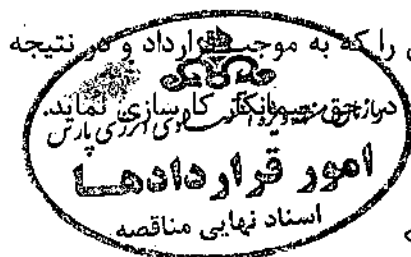 را که به موجب قرارداد و در نتیجه
در حق پیمانکار کارسازی نماید.
انرژی پارس
امور قراردادها
اسناد نهایی مناقصه